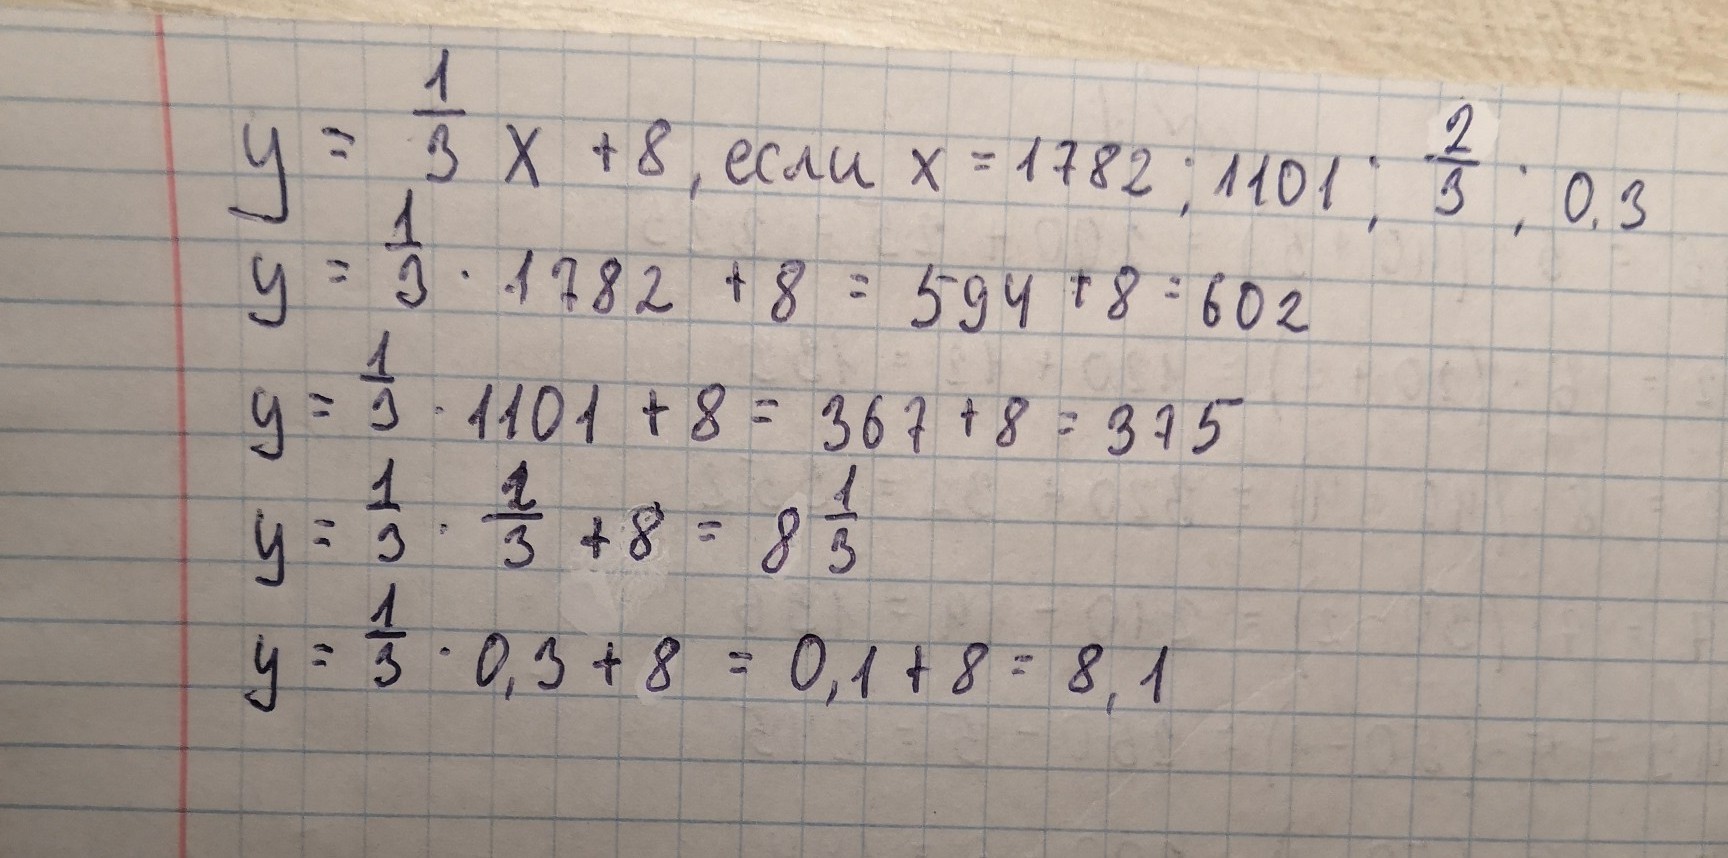 y = 1/3 x + 8, если x = 1782; 1101; 2/3; 0.3
y = 1/3 · 1782 + 8 = 594 + 8 = 602
y = 1/3 · 1101 + 8 = 367 + 8 = 375
y = 1/3 · /3 + 8 = 8 1/3
y = 1/3 · 0,3 + 8 = 0,1 + 8 = 8,1